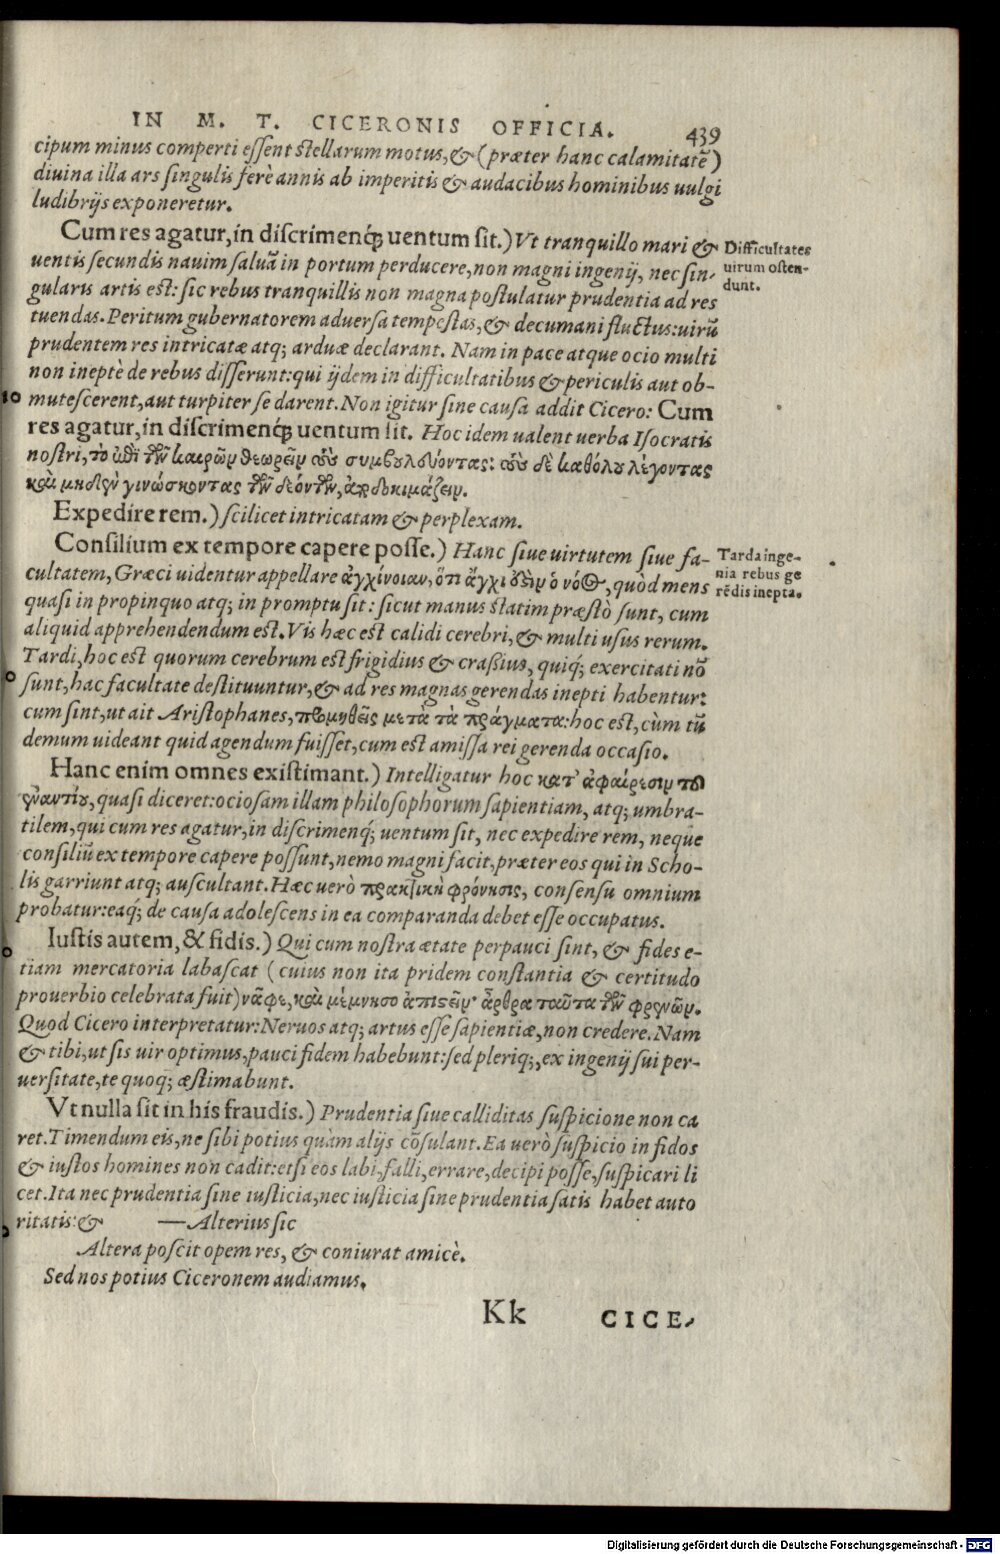 IN M. T. CICERONIS OFFICIA. 439
cipum minus comperti essent stellarum motus, & (præter hanc calamitatē)
diuina illa ars singulis ferè annis ab imperitis & audacibus hominibus uulgi
ludibrijs exponeretur.
Cum res agatur, in discrimenq́; uentum sit.) Vt tranquillo mari &
uentis secundis nauim saluā in portum perducere, non magni ingenij, nec sin-
gularis artis est: sic rebus tranquillis non magna postulatur prudentia ad res
tuendas. Peritum gubernatorem aduersa tempestas, & decumani fluctus: uirū
prudentem res intricatæ atq; arduæ declarant. Nam in pace atque ocio multi
non ineptè de rebus disserunt: qui ijdem in difficultatibus & periculis aut ob-
mutescerent, aut turpiter se darent. Non igitur sine causa addit Cicero: Cum
res agatur, in discrimenq́; uentum sit. Hoc idem ualent uerba Isocratis
nostri, τὸ ἐπὶ τῶν καιρῶν θεωρεῖν τοὺς συμβουλεύοντας: τοὺς δὲ καθόλου λέγοντας
καὶ μηδὲν γινώσκοντας τῶν δεόντων, ἀποδοκιμάζειν.
Expedire rem.) scilicet intricatam & perplexam.
Consilium ex tempore capere posse.) Hanc siue uirtutem siue fa-
cultatem, Græci uidentur appellare ἀγχίνοιαν, ὅτι ἄγχι ἐστὶν ὁ νόος, quòd mens
quasi in propinquo atq; in promptu sit: sicut manus statim præstò sunt, cum
aliquid apprehendendum est. Vis hæc est calidi cerebri, & multi usus rerum.
Tardi, hoc est quorum cerebrum est frigidius & crassius, quiq́; exercitati nō
sunt, hac facultate destituuntur, & ad res magnas gerendas inepti habentur:
cum sint, ut ait Aristophanes, προμηθεῖς μετὰ τὰ πράγματα: hoc est, cùm tū
demum uideant quid agendum fuisset, cum est amissa rei gerenda occasio.
Hanc enim omnes existimant.) Intelligatur hoc κατ' ἀφαίρεσιν τοῦ
ἐναντίου, quasi diceret: ociosam illam philosophorum sapientiam, atq; umbra-
tilem, qui cum res agatur, in discrimenq́; uentum sit, nec expedire rem, neque
consiliū ex tempore capere possunt, nemo magni facit, præter eos qui in Scho-
lis garriunt atq; auscultant. Hæc uerò πρακτικὴ φρόνησις, consensu omnium
probatur: eaq́; de causa adolescens in ea comparanda debet esse occupatus.
Iustis autem, & fidis.) Qui cum nostra ætate perpauci sint, & fides e-
tiam mercatoria labascat (cuius non ita pridem constantia & certitudo
prouerbio celebrata fuit) νᾶφε, καὶ μέμνησο ἀπιστεῖν· ἄρθρα ταῦτα τῶν φρενῶν.
Quod Cicero interpretatur: Neruos atq; artus esse sapientiæ, non credere. Nam
& tibi, ut sis uir optimus, pauci fidem habebunt: sed pleriq;, ex ingenij sui per-
uersitate, te quoq; æstimabunt.
Vt nulla sit in his fraudis.) Prudentia siue calliditas suspicione non ca
ret. Timendum eis, ne sibi potius quàm alijs cōsulant. Ea uerò suspicio in fidos
& iustos homines non cadit: etsi eos labi, falli, errare, decipi posse, suspicari li
cet. Ita nec prudentia sine iusticia, nec iusticia sine prudentia satis habet auto
ritatis: & — Alterius sic
Altera poscit opem res, & coniurat amicè.
Sed nos potius Ciceronem audiamus.
Kk CICE-
Difficultates
uirum osten-
dunt.
Tarda inge-
nia rebus ge
rēdis inepta.
10
Digitalisierung gefördert durch die Deutsche Forschungsgemeinschaft - DFG